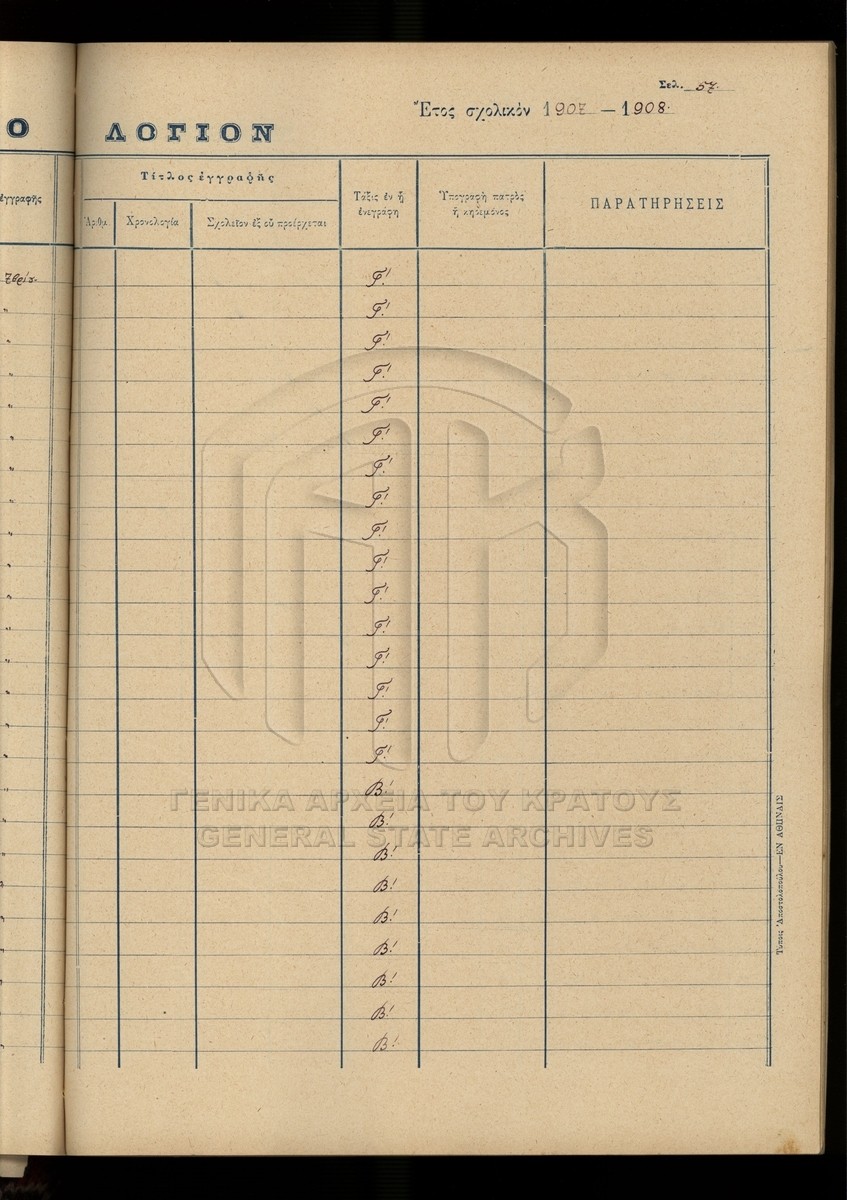 Σελ. 57.
Ἔτος σχολικόν 1907 — 1908.
Ο ΛΟΓΙΟΝ
ἐγγραφῆς
Τίτλος ἐγγραφῆς
Ἀριθμ.
Χρονολογία
Σχολεῖον ἐξ οὗ προέρχεται
Τάξις ἐν ᾗ
ἐνεγράφη
Ὑπογραφὴ πατρὸς
ἢ κηδεμόνος
ΠΑΡΑΤΗΡΗΣΕΙΣ
7βρίου
Γ!
Γ!
Γ!
Γ!
Γ!
Γ!
Γ!
Γ!
Γ!
Γ!
Γ!
Γ!
Γ!
Γ!
Γ!
Γ!
Β!
Β!
Β!
Β!
Β!
Β!
Β!
Β!
Β!
ΓΕΝΙΚΑ ΑΡΧΕΙΑ ΤΟΥ ΚΡΑΤΟΥΣ
GENERAL STATE ARCHIVES
Τύποις Ἀποστολοπούλου—ΕΝ ΑΘΗΝΑΙΣ